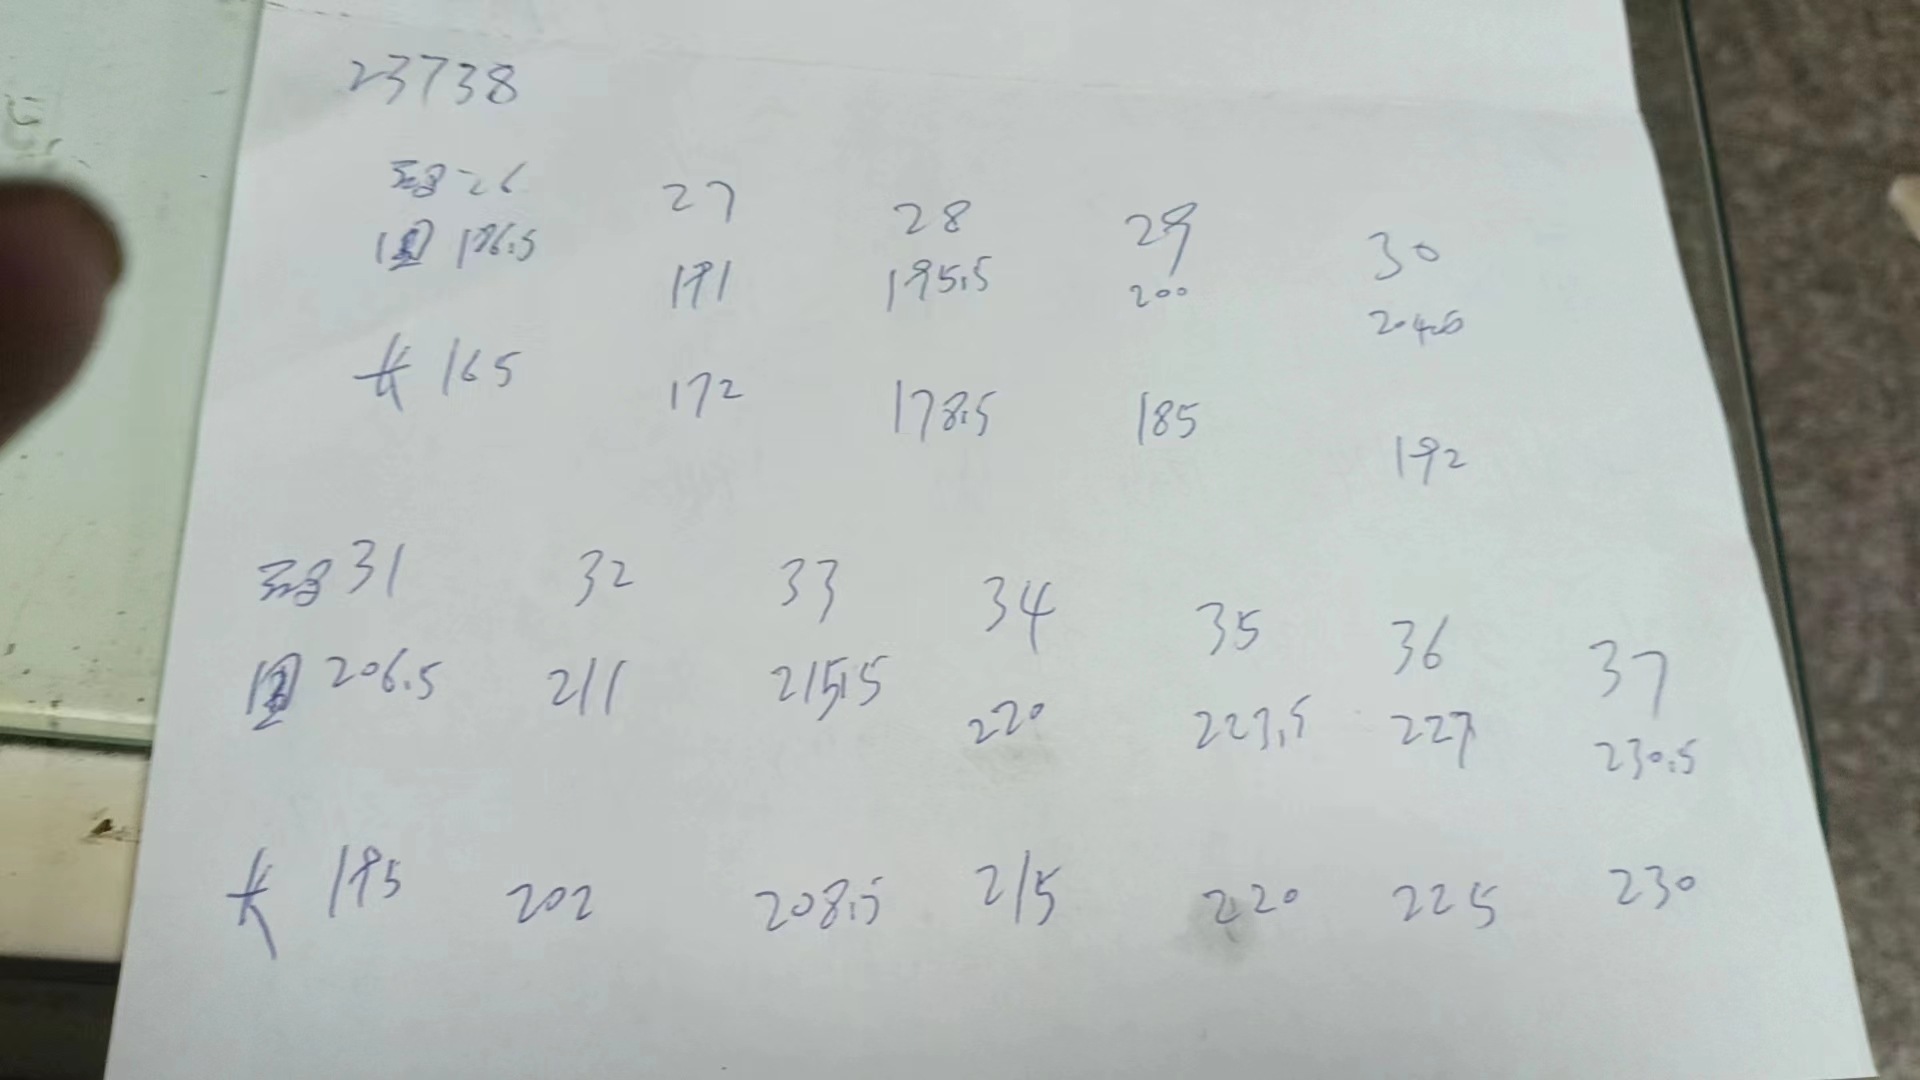 23738
26 27 28 29 30
围 186.5 191 195.5 200 204.5
长 165 172 178.5 185 192
31 32 33 34 35 36 37
围 206.5 211 215.5 220 223.5 227 230.5
长 195 202 208.5 215 220 225 230